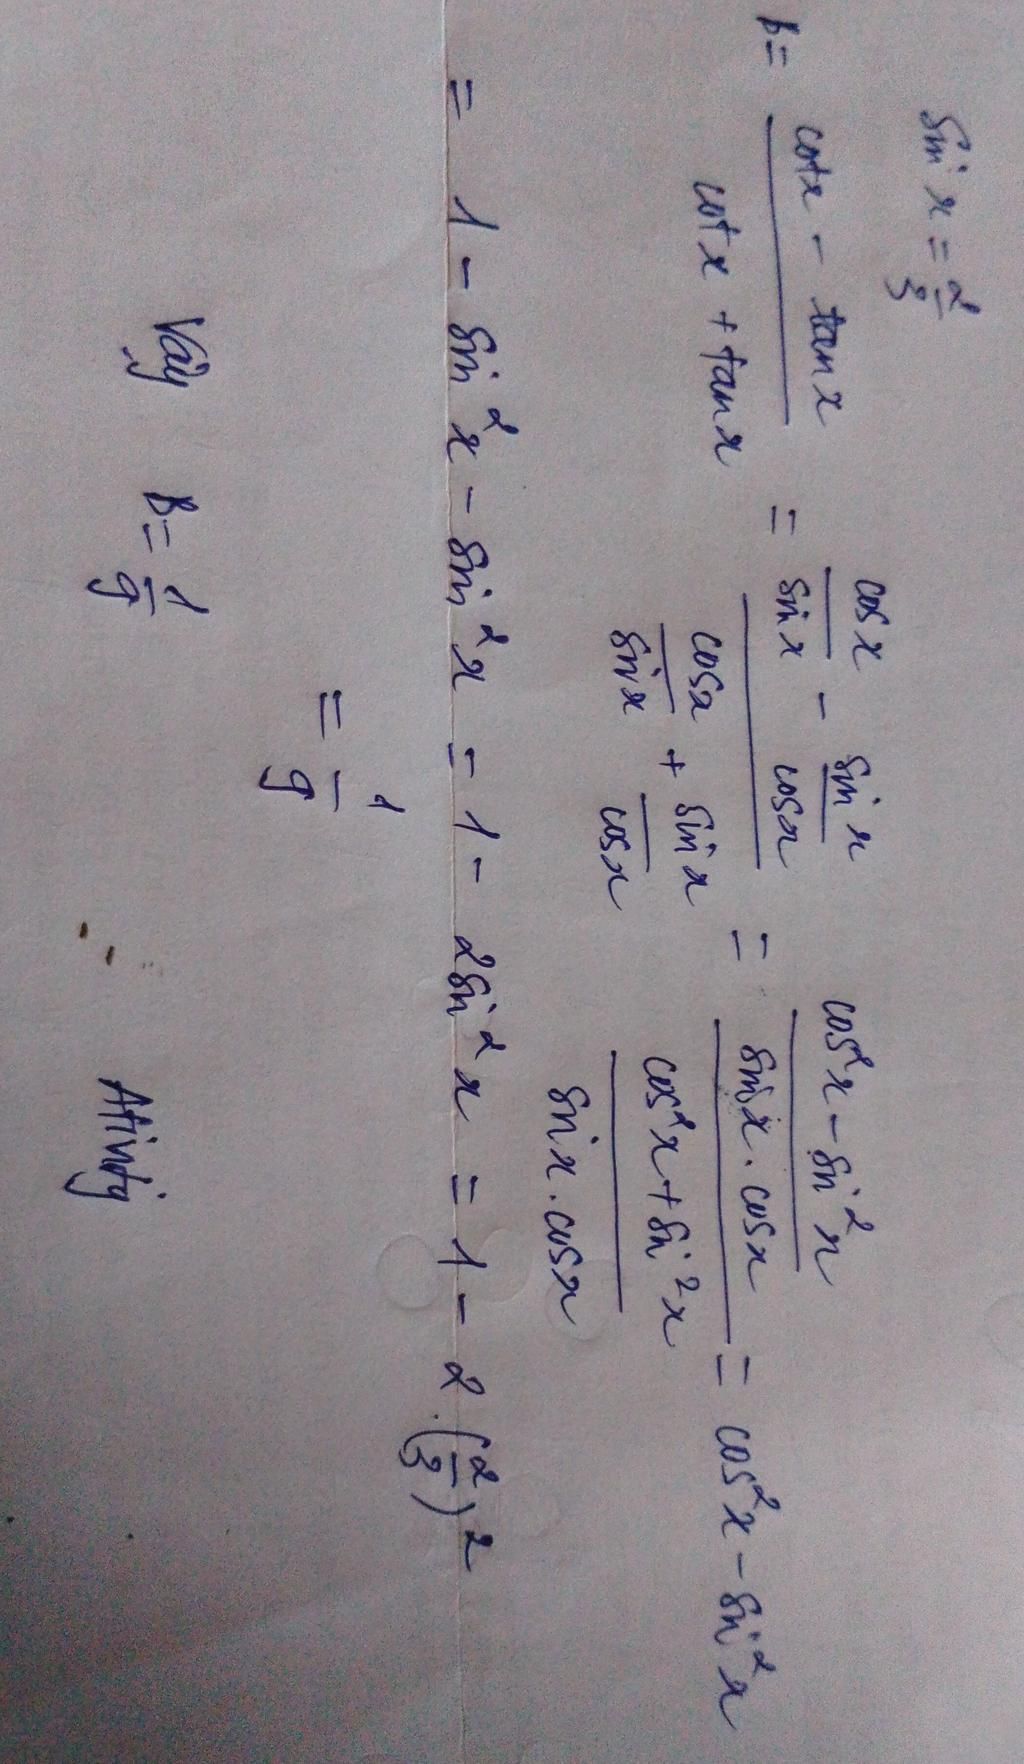 sin x = 2/3
B = (cotx - tanx)/(cotx + tanx) = (cosx/sinx - sinx/cosx)/(cosx/sinx + sinx/cosx) = ((cos²x - sin²x)/(sinx.cosx))/((cos²x + sin²x)/(sinx.cosx)) = cos²x - sin²x
= 1 - sin²x - sin²x = 1 - 2sin²x = 1 - 2.(2/3)²
= 1/9
Vậy B = 1/9